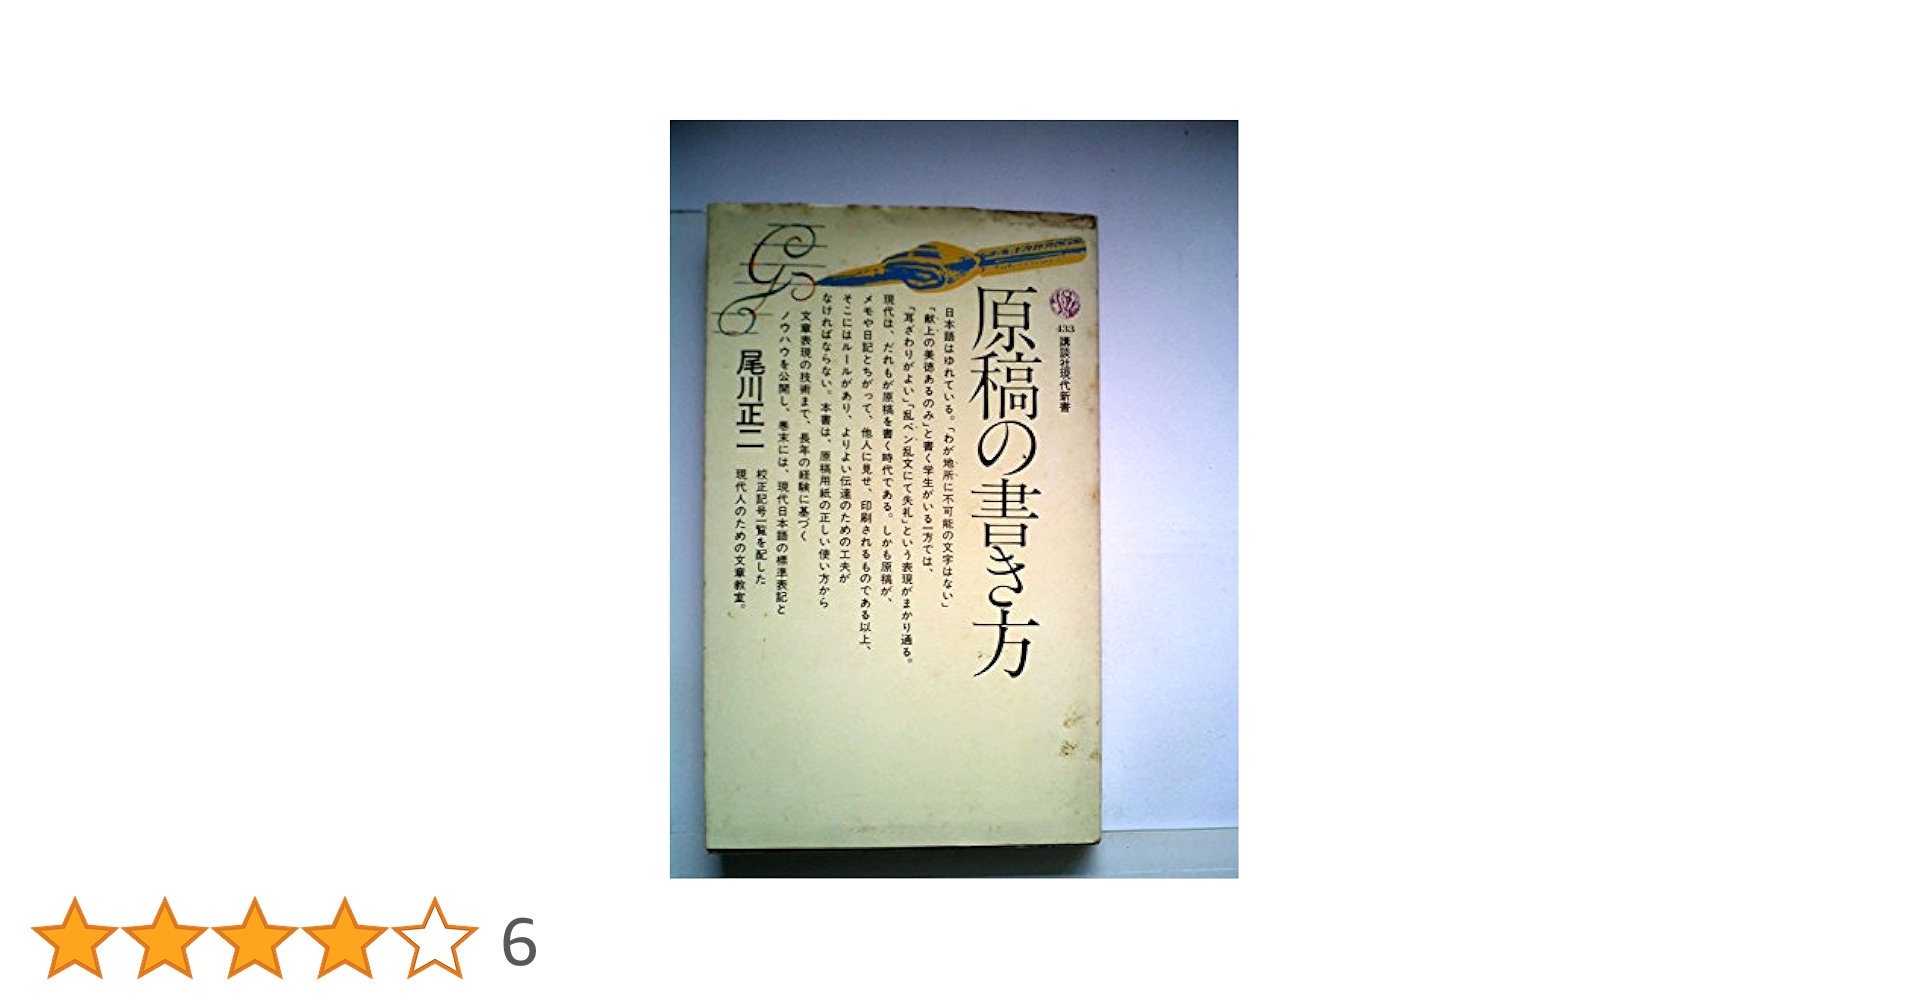 433 講談社現代新書
原稿の書き方
日本語はゆれている。「わが地所に不可能の文字はない」
「献上の美徳あるのみ」と書く学生がいる一方では、
「耳ざわりがよい」「乱ペン乱文にて失礼」という表現がまかり通る。
現代は、だれもが原稿を書く時代である。しかも原稿が、
メモや日記とちがって、他人に見せ、印刷されるものである以上、
そこにはルールがあり、よりよい伝達のための工夫が
なければならない。本書は、原稿用紙の正しい使い方から
文章表現の技術まで、長年の経験に基づく
ノウハウを公開し、巻末には、現代日本語の標準表記と
校正記号一覧を配した
現代人のための文章教室。
尾川正二
6